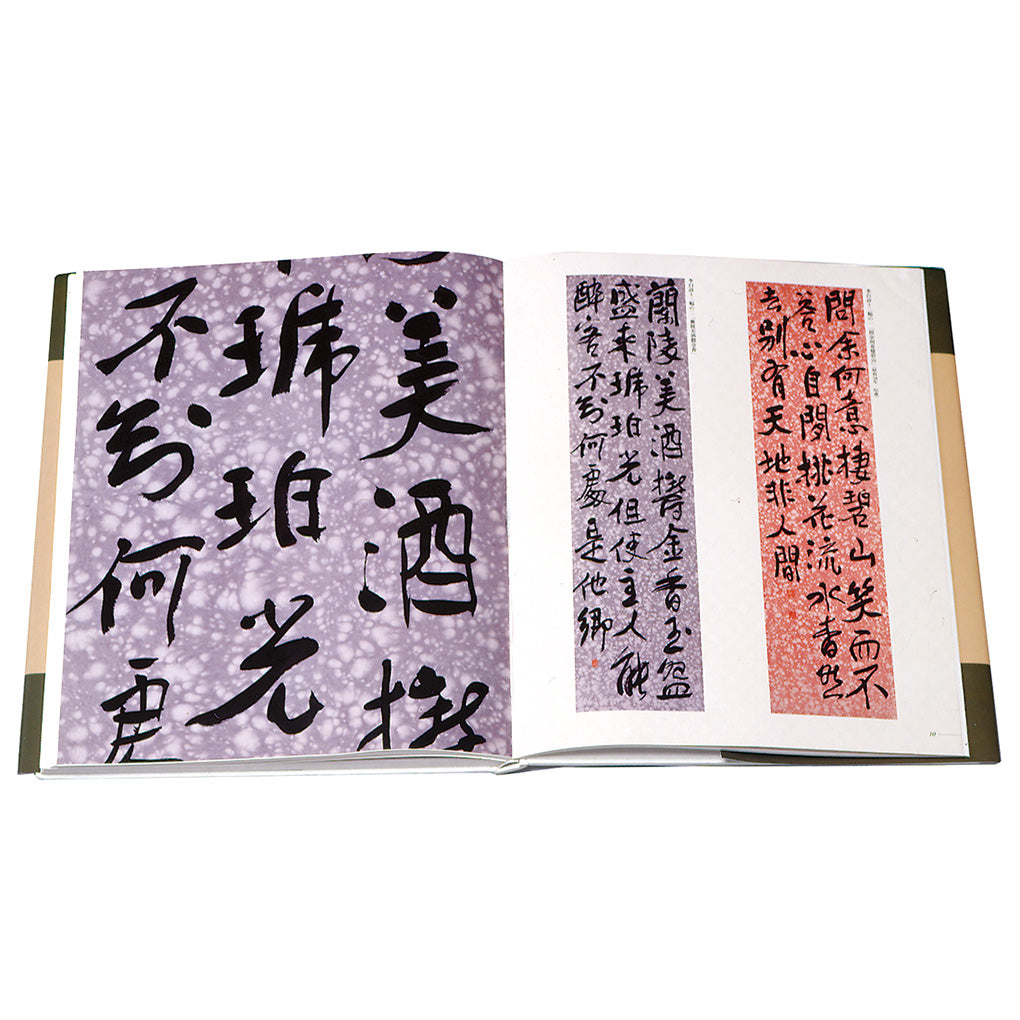 問余何意棲碧山笑而不
答心自閑桃花流水杳然
去別有天地非人間
蘭陵美酒欝金香玉盌
盛来琥珀光但使主人能
酔客不知何處是他郷
10
美酒欝
琥珀光
不知何處